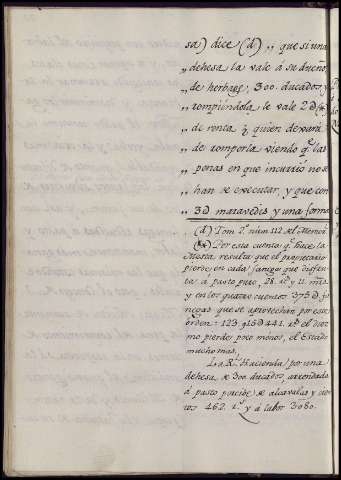 sa) dice (d) „ que si una
„ dehesa la vale á su dueño
„ de herbage, 300. ducados,
„ rompiendola le vale 2d
„ de renta q. quien dexará
„ de romperla viendo q. las
„ penas en que incurrió no se
„ han de executar, y que con
„ 3d maravedis y una forma
(d) Tom. 2. num. 112 del Memor.
Por esta cuenta q. hace la
Mesta, resulta que el propietario
pierde en cada fanega que disfru-
ta á pasto puro, 28. r.s y 11. mrs
y en los quatro cuentos 375 d. fa-
negas que se aprovechan por este
orden: 123. q.s 641. r.s el diez-
mo pierde poco menos, el Estado
mucho mas.
La R.l Hacienda por una
dehesa de 300. ducados, arrendada
á pasto percibe de alcavalas y cien-
tos 462. r.s y á labor 3080.